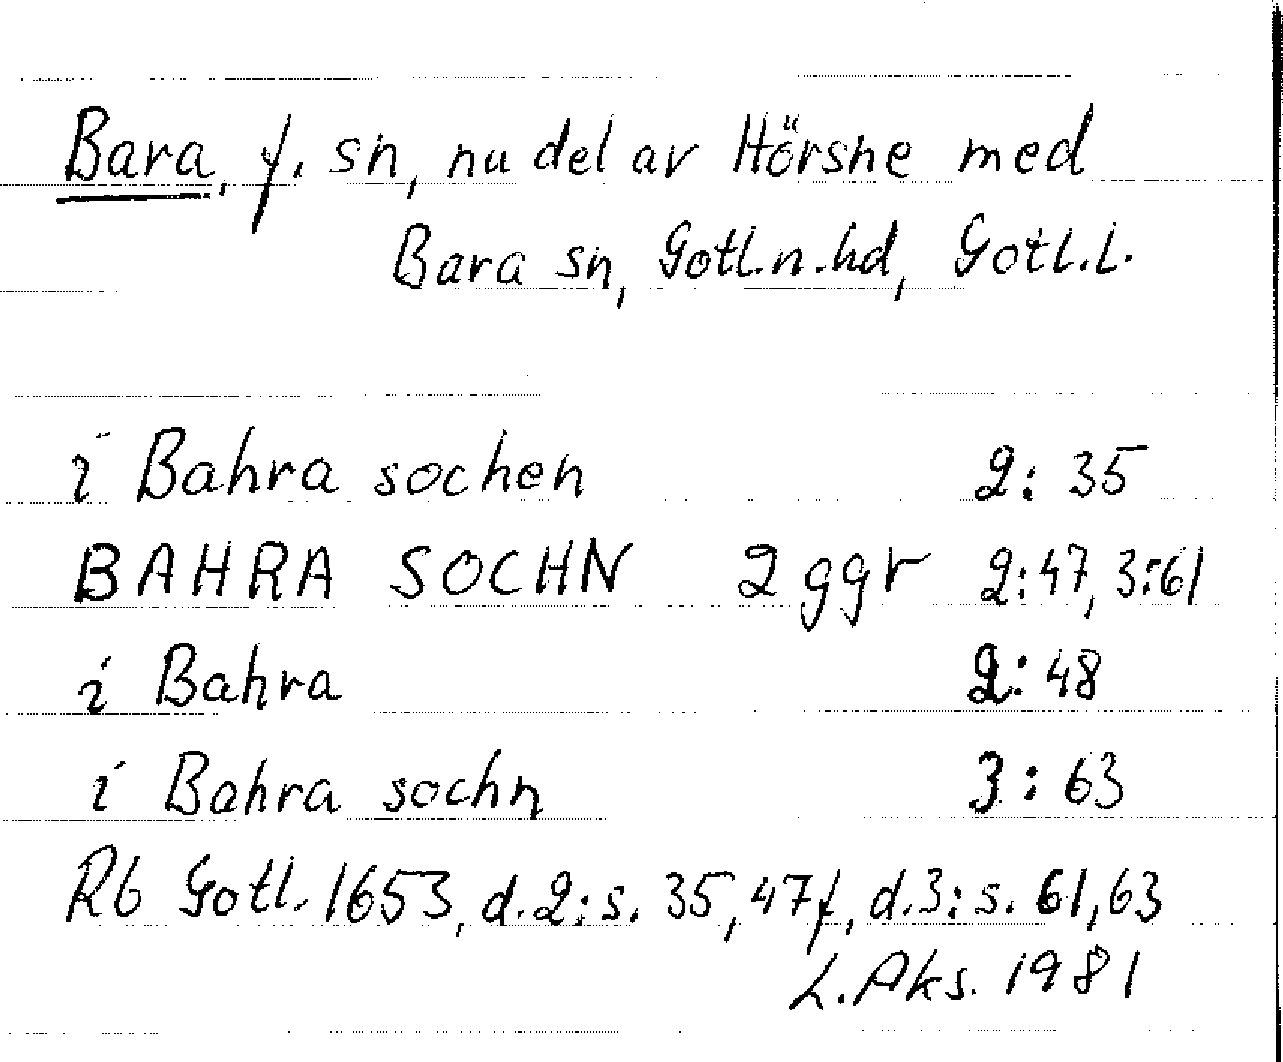 Bara, f. sn, nu del av Hörsne med
Bara sn, Gotl.n.hd, Gotl.l.
i Bahra sochen 2: 35
BAHRA SOCHN 2 ggr 2:47, 3:61
i Bahra 2: 48
i Bahra sochn 3: 63
Rb Gotl. 1653, d.2: s. 35, 47f, d.3: s. 61, 63
L. Aks. 1981